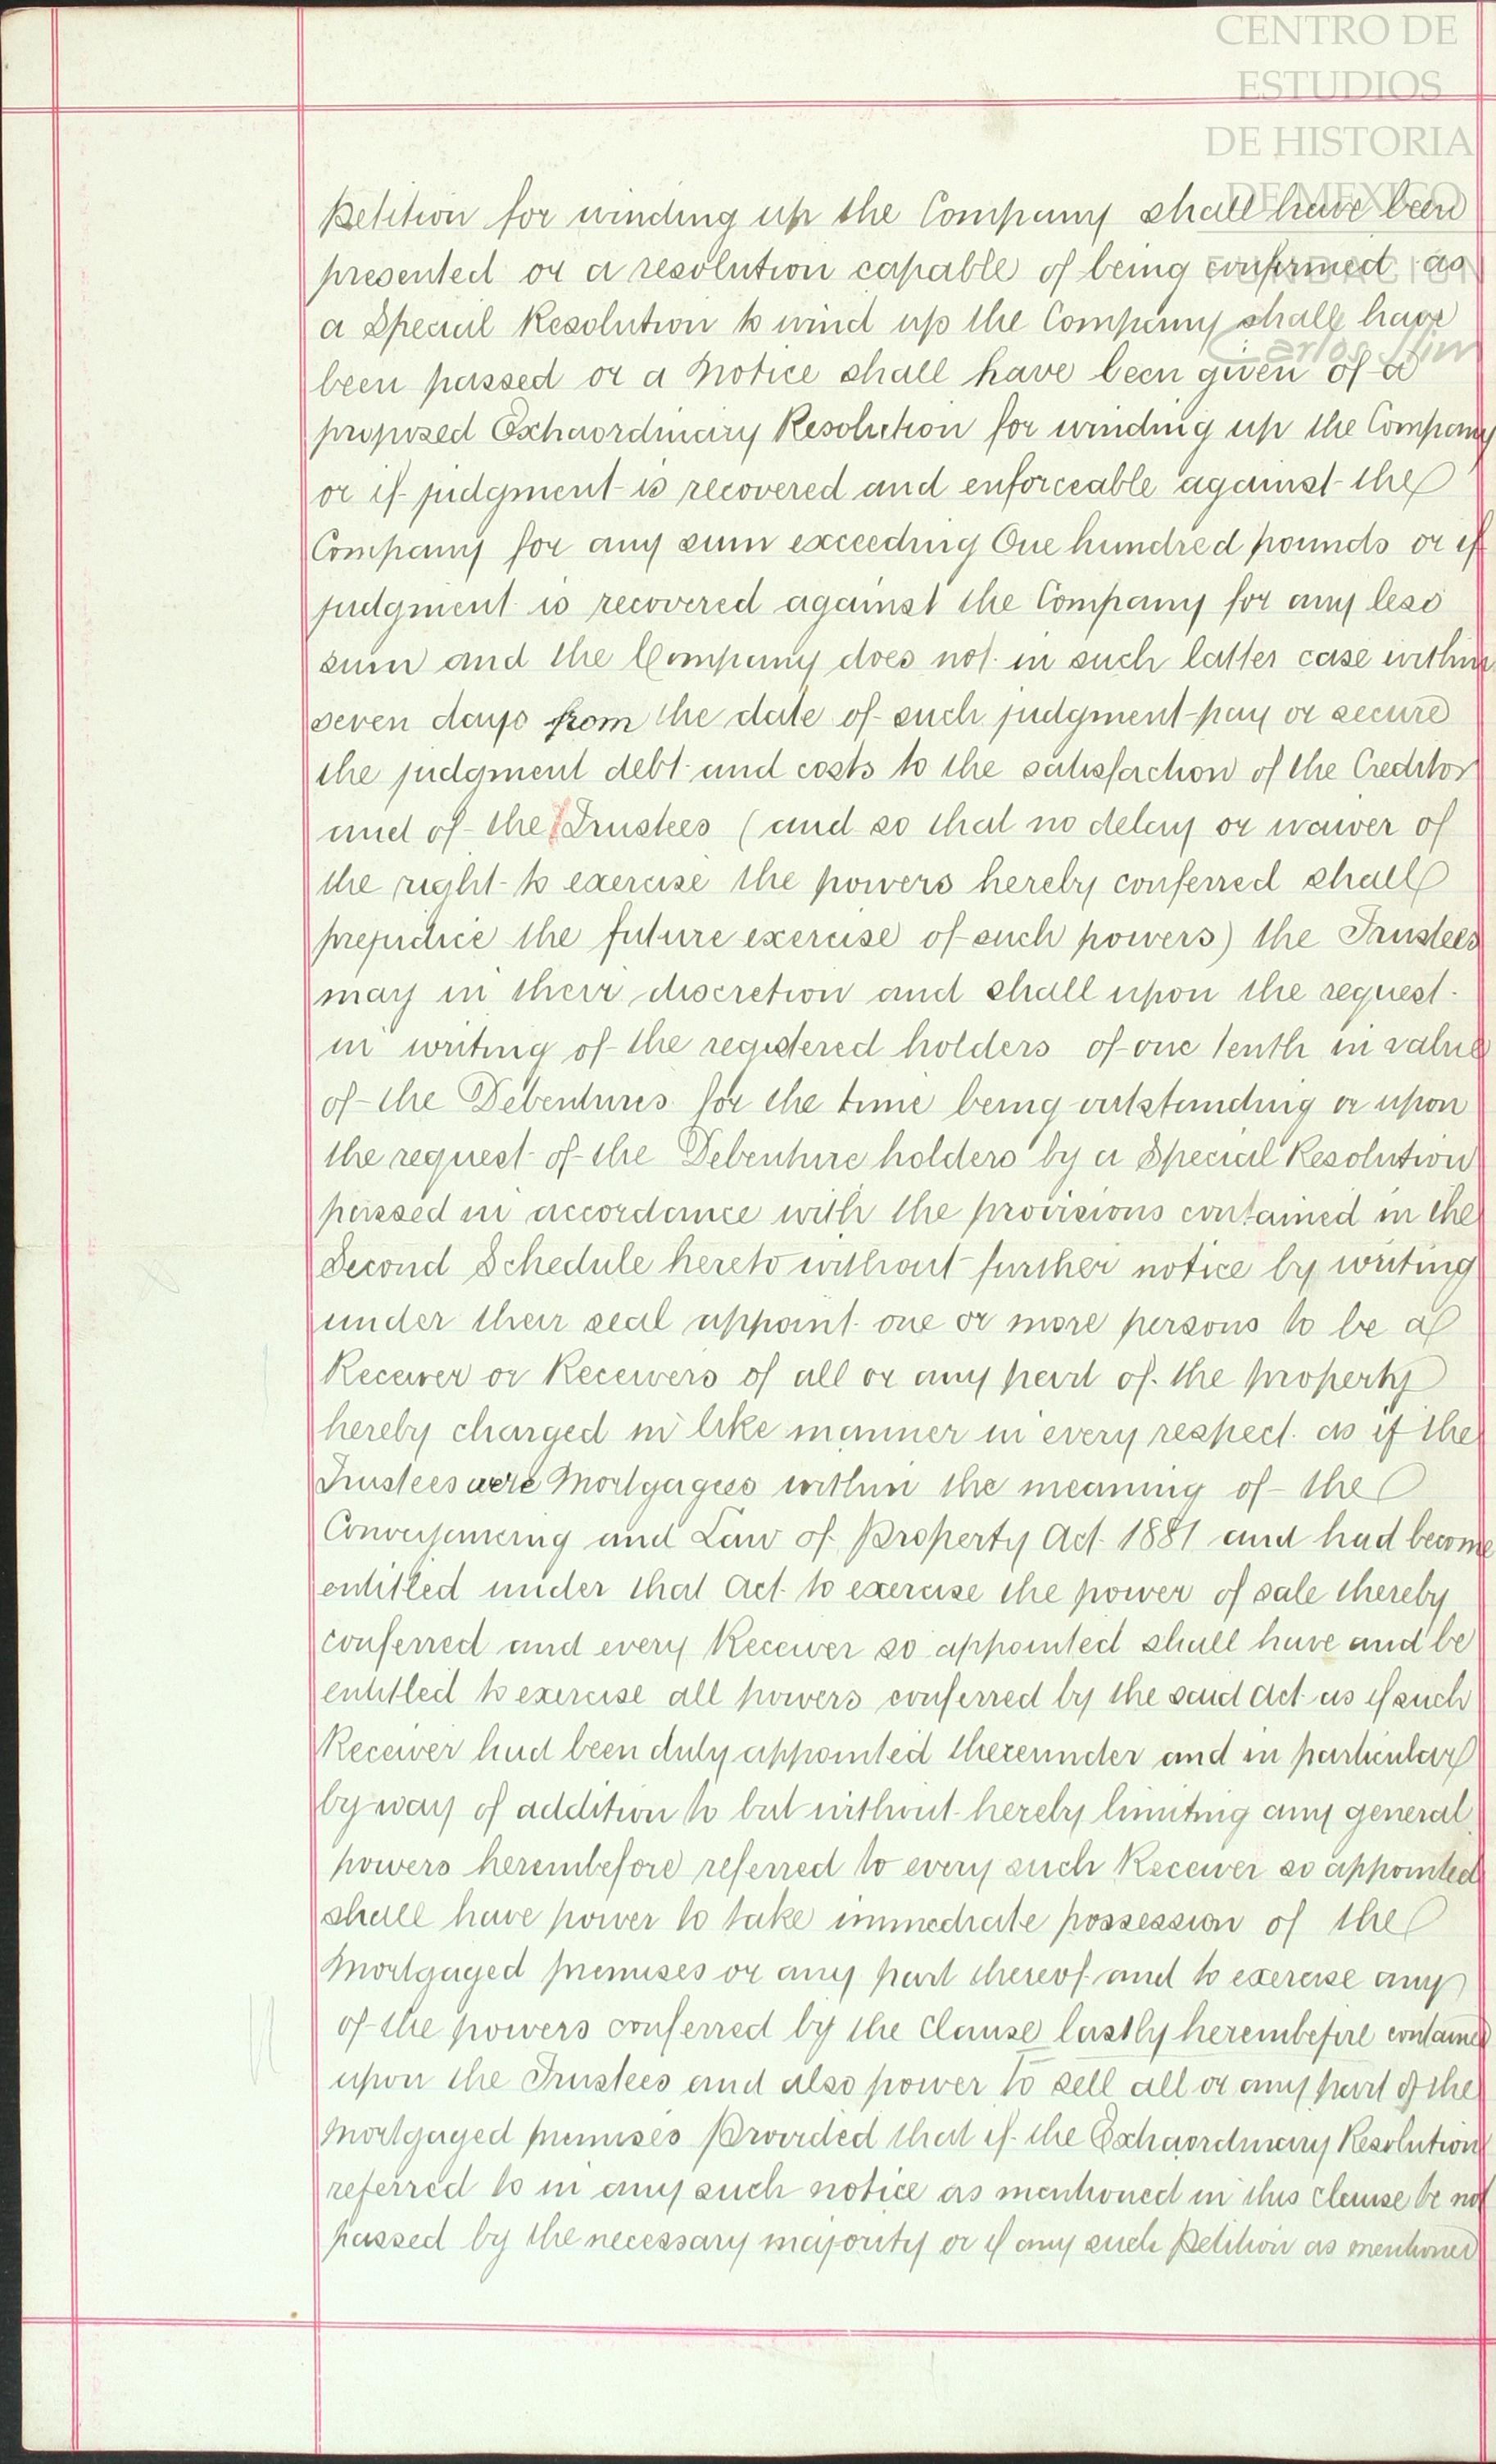 CENTRO DE
ESTUDIOS
DE HISTORIA
DE MEXICO
FUNDACION
Carlos Slim
Petition for winding up the Company shall have been
presented or a resolution capable of being confirmed as
a Special Resolution to wind up the Company shall have
been passed or a Notice shall have been given of a
proposed Extraordinary Resolution for winding up the Company
or if judgment is recovered and enforceable against the
Company for any sum exceeding One hundred pounds or if
judgment is recovered against the Company for any less
sum and the Company does not in such latter case within
seven days from the date of such judgment pay or secure
the judgment debt and costs to the satisfaction of the Creditor
and of the Trustees (and so that no delay or waiver of
the right to exercise the powers hereby conferred shall
prejudice the future exercise of such powers) the Trustees
may in their discretion and shall upon the request
in writing of the registered holders of one tenth in value
of the Debentures for the time being outstanding or upon
the request of the Debenture holders by a Special Resolution
passed in accordance with the provisions contained in the
Second Schedule hereto without further notice by writing
under their seal appoint one or more persons to be a
Receiver or Receivers of all or any part of the property
hereby charged in like manner in every respect as if the
Trustees were Mortgagees within the meaning of the
Conveyancing and Law of Property Act 1881 and had become
entitled under that Act to exercise the power of sale thereby
conferred and every Receiver so appointed shall have and be
entitled to exercise all powers conferred by the said Act as if such
Receiver had been duly appointed thereunder and in particular
by way of addition to but without hereby limiting any general
powers hereinbefore referred to every such Receiver so appointed
shall have power to take immediate possession of the
Mortgaged premises or any part thereof and to exercise any
of the powers conferred by the Clause lastly hereinbefore contained
upon the Trustees and also power to sell all or any part of the
Mortgaged premises Provided that if the Extraordinary Resolution
referred to in any such notice as mentioned in this Clause be not
passed by the necessary majority or if any such Petition as mentioned